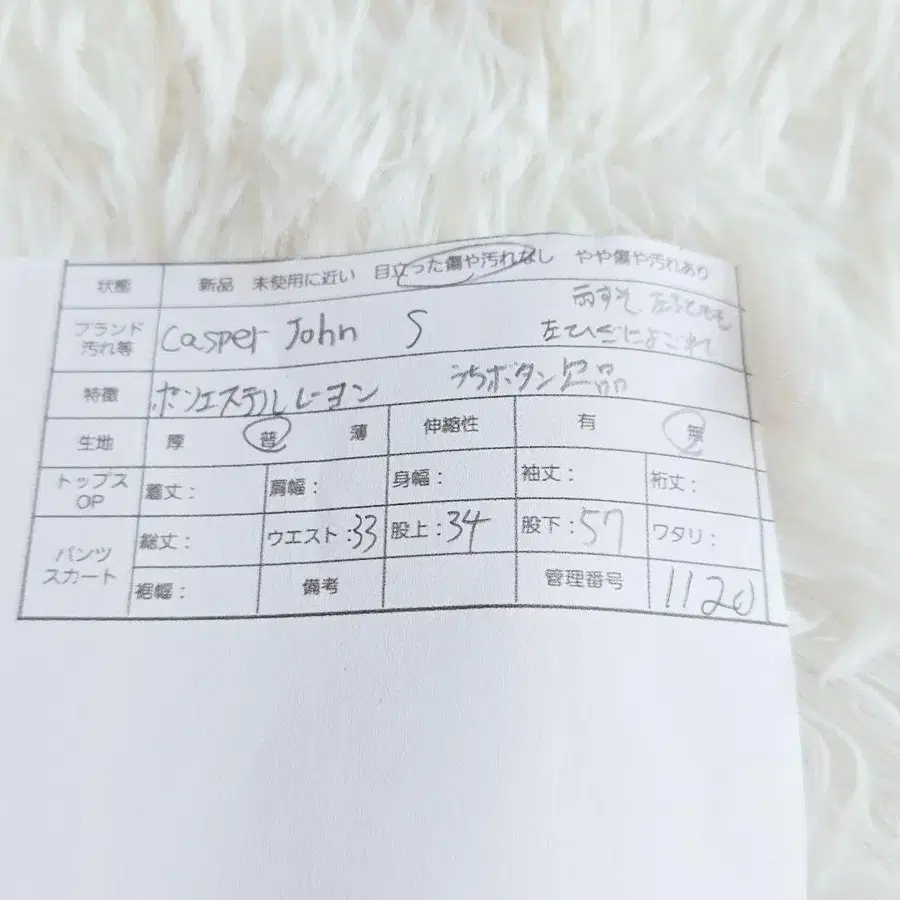 状態 新品 未使用に近い 目立った傷や汚れなし やや傷や汚れあり
ブランド 汚れ等 Casper John S 両すそ 左ふともも
左ひざによごれ
特徴 ポリエステルレーヨン うちボタン欠品
生地 厚 普 薄 伸縮性 有 無
トップス OP 着丈： 肩幅： 身幅： 袖丈： 裄丈：
パンツ スカート 総丈： ウエスト：33 股上：34 股下：57 ワタリ：
裾幅： 備考 管理番号 1120